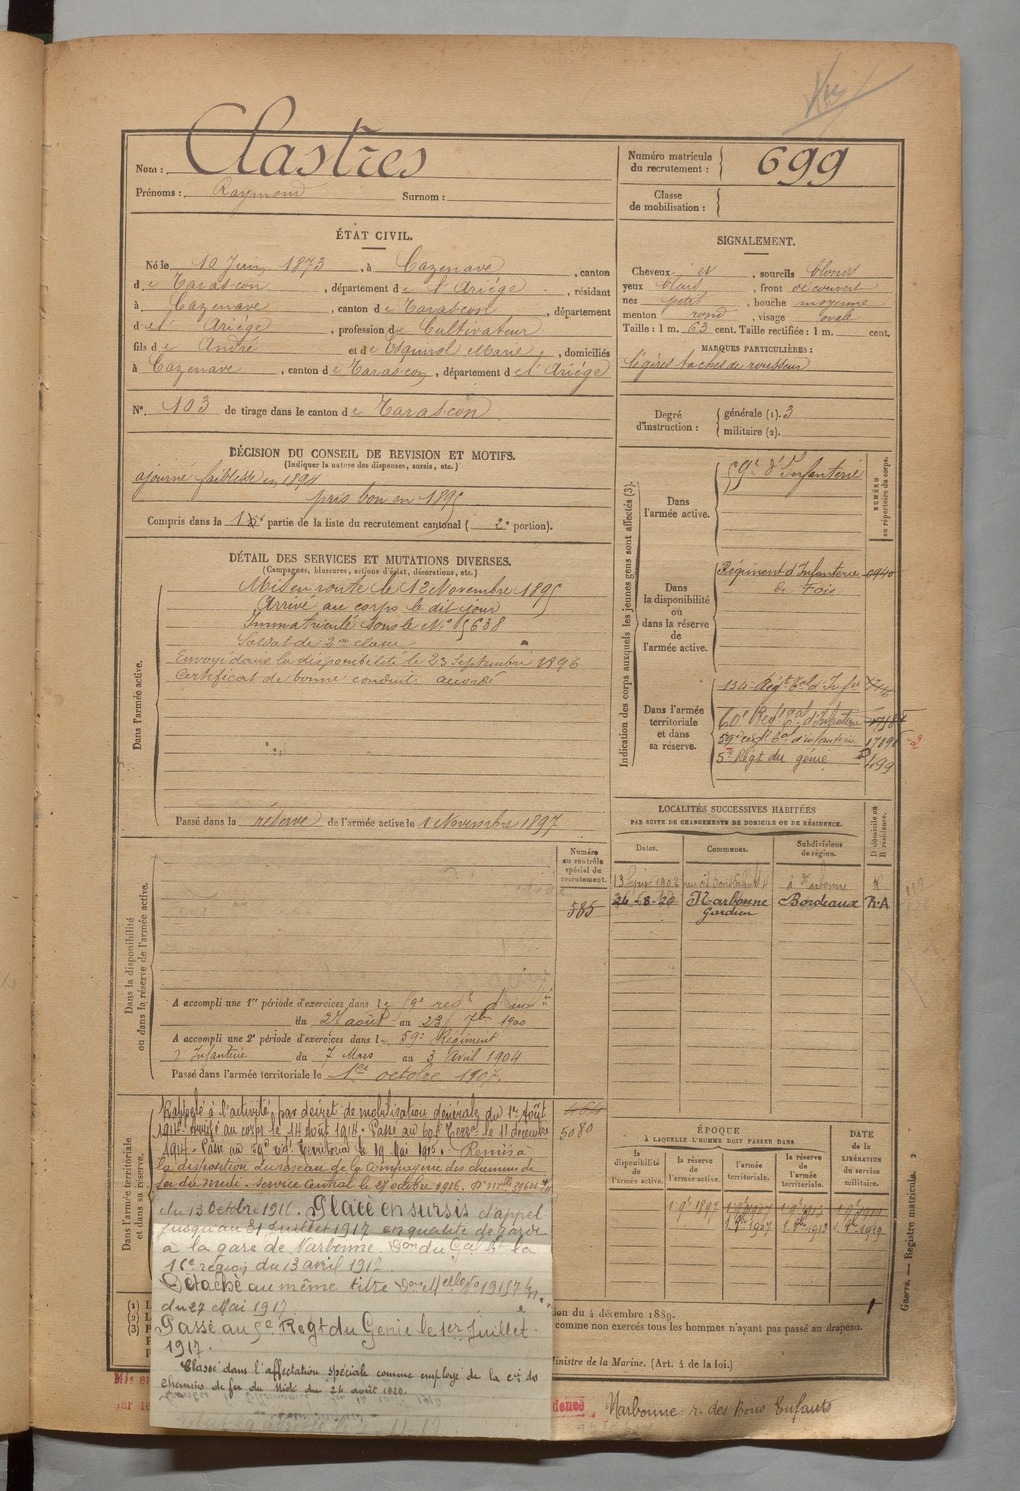 Nom : Clastres
Prénoms : Raymond Surnom :
Numéro matricule du recrutement : 699
Classe de mobilisation :
ÉTAT CIVIL.
Né le 10 Juin 1873, à Cazenave, canton
de Tarascon, département de l'Ariège, résidant
à Cazenave, canton de Tarascon, département
de l'Ariège, profession de Cultivateur
fils de André et de Esquirol Marie, domiciliés
à Cazenave, canton de Tarascon, département de l'Ariège
N° 103 de tirage dans le canton de Tarascon
SIGNALEMENT.
Cheveux, sourcils blonds
yeux bleus, front découvert
nez petit, bouche moyenne
menton rond, visage ovale
Taille : 1 m. 63 cent. Taille rectifiée : 1 m. cent.
MARQUES PARTICULIÈRES :
légères taches de rousseur
Degré d'instruction : générale (1). 3
militaire (2).
DÉCISION DU CONSEIL DE REVISION ET MOTIFS.
(Indiquer la nature des dispenses, sursis, etc.)
ajourné faiblesse en 1894
pris bon en 1895
Compris dans la partie de la liste du recrutement cantonal ( 2e portion).
DÉTAIL DES SERVICES ET MUTATIONS DIVERSES.
(Campagnes, blessures, actions d'éclat, décorations, etc.)
Dans l'armée active.
Mis en route le 12 Novembre 1895
Arrivé au corps le dit jour
Immatriculé sous le N° 5638
Soldat de 2me classe
Envoyé dans la disponibilité le 23 Septembre 1896
Certificat de bonne conduite accordé
Passé dans la réserve de l'armée active le 1 Novembre 1897
Indication des corps auxquels les jeunes gens sont affectés (3).
NUMÉRO au répertoire du corps.
Dans l'armée active.
59e d'Infanterie
Dans la disponibilité ou dans la réserve de l'armée active.
Régiment d'Infanterie
de Foix
Dans l'armée territoriale et dans sa réserve.
134e Régt tal d'Infie
60e Régt tal d'Infanterie
59e régt tal d'infanterie
5e Régt du génie
LOCALITÉS SUCCESSIVES HABITÉES
PAR SUITE DE CHANGEMENTS DE DOMICILE OU DE RÉSIDENCE.
Dates. Communes. Subdivisions de région. D domicile ou R résidence.
1902 à Narbonne R
24-8-20 Narbonne Bordeaux R.A
gardien
Dans la disponibilité ou dans la réserve de l'armée active.
Numéro au contrôle spécial du recrutement.
585
A accompli une 1re période d'exercices dans le 59e regt d'infie
du 27 août au 23 7bre 1900
A accompli une 2e période d'exercices dans le 59e Régiment
d'Infanterie du 7 Mars au 3 Avril 1904
Passé dans l'armée territoriale le 1er octobre 1907.
Dans l'armée territoriale et dans sa réserve.
464
5080
Rappelé à l'activité par décret de mobilisation générale du 1er Août
1914. Arrivé au corps le 14 août 1914. Passé au 60e Terral le 11 décembre
1914. Passé au 59e régt Territorial le 19 Mai 1915. Remis à
la disposition du réseau de la Compagnie des chemins de
fer du Midi. Service central le 27 octobre 1916.
du 13 octobre 1916. Placé en sursis d'appel
jusqu'au 31 Juillet 1917 en qualité de garde
à la gare de Narbonne. Don du Gal Ct la
16e région du 13 avril 1917.
Détaché au même titre
du 27 Mai 1917
Passé au 5e Régt du Génie le 1er Juillet
1917.
Classé dans l'affectation spéciale comme employé de la Cie des
chemins de fer du Midi du 24 août 1920.
ÉPOQUE
À LAQUELLE L'HOMME DOIT PASSER DANS
la disponibilité de l'armée active. la réserve de l'armée active. l'armée territoriale. la réserve de l'armée territoriale.
DATE de la LIBÉRATION du service militaire.
1 9bre 1897
Guerre. — Registre matricule. 2
ion du 4 décembre 1889.
comme non exercés tous les hommes n'ayant pas passé au drapeau.
Ministre de la Marine. (Art. 4 de la loi.)
Narbonne r. des Bons Enfants